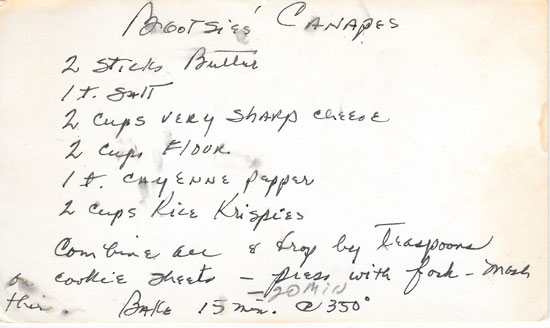 Bootsies' Canapes
2 sticks Butter
1 t. salt
2 cups very sharp cheese
2 cups flour
1 t. cayenne pepper
2 cups Rice Krispies
Combine all & drop by teaspoons
o cookie sheets - press with fork - mash
-20 min
thin. Bake 15 min. @ 350°